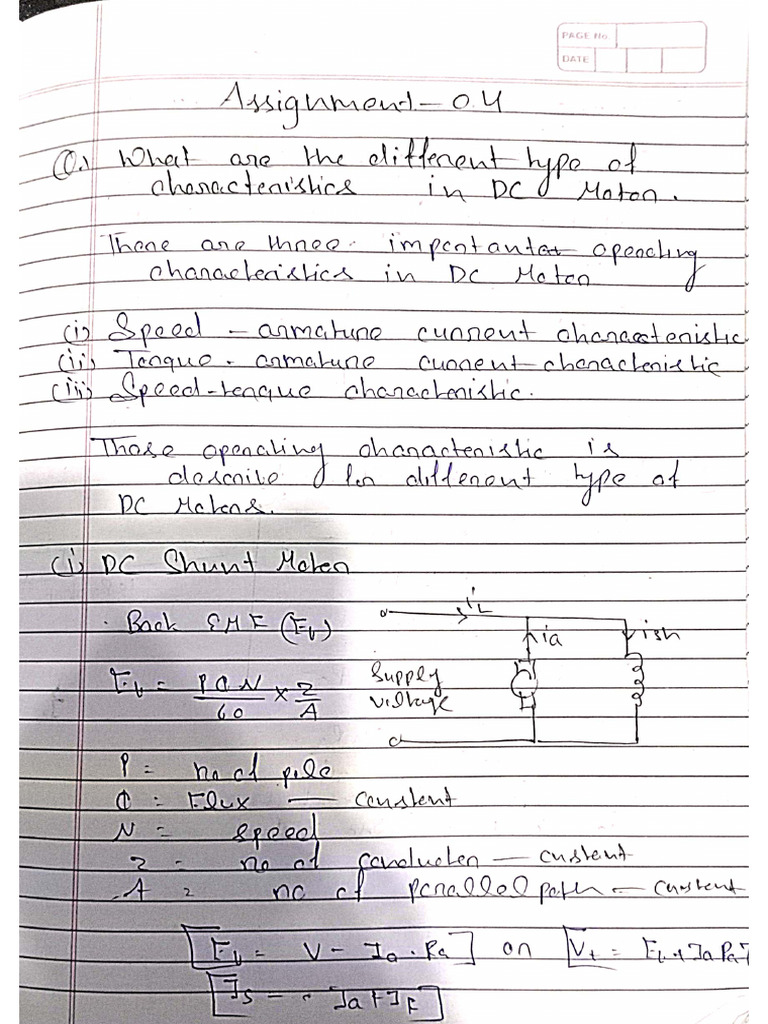 PAGE No.
DATE
Assignment - 04
Q.1 What are the different type of
characteristics in DC Motor.
There are three importantant operating
characteristics in DC Motor
(i) Speed - armature current characteristic
(ii) Torque - armature current characteristic
(iii) Speed-torque characteristic.
Those operating characteristic is
describe for different type of
DC Motors.
(i) DC Shunt Motor
Back EMF (Eb)
Eb = PΦN/60 × Z/A
iL
ia
ish
Supply
voltage
P = no of pole
Φ = Flux — constant
N = speed
Z = no of conductor — constent
A = no of parallel path — constent
Eb = V - Ia . Ra or Vt = Eb + IaRa
Is = Ia + IF